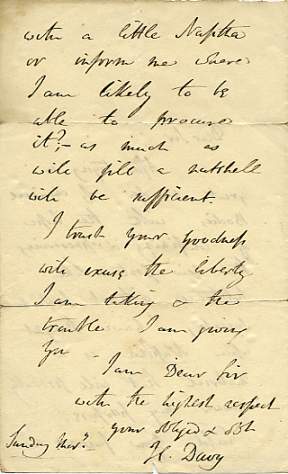 with a little Naptha
or inform me where
I am likely to be
able to procure
it? – as much as
will fill a nutshell
will be sufficient.
I trust your goodness
will excuse the liberty
I am taking & the
trouble I am giving
you –
I am Dear Sir
with the highest respect
your obliged & obt
Sunday Mor.g
H. Davy